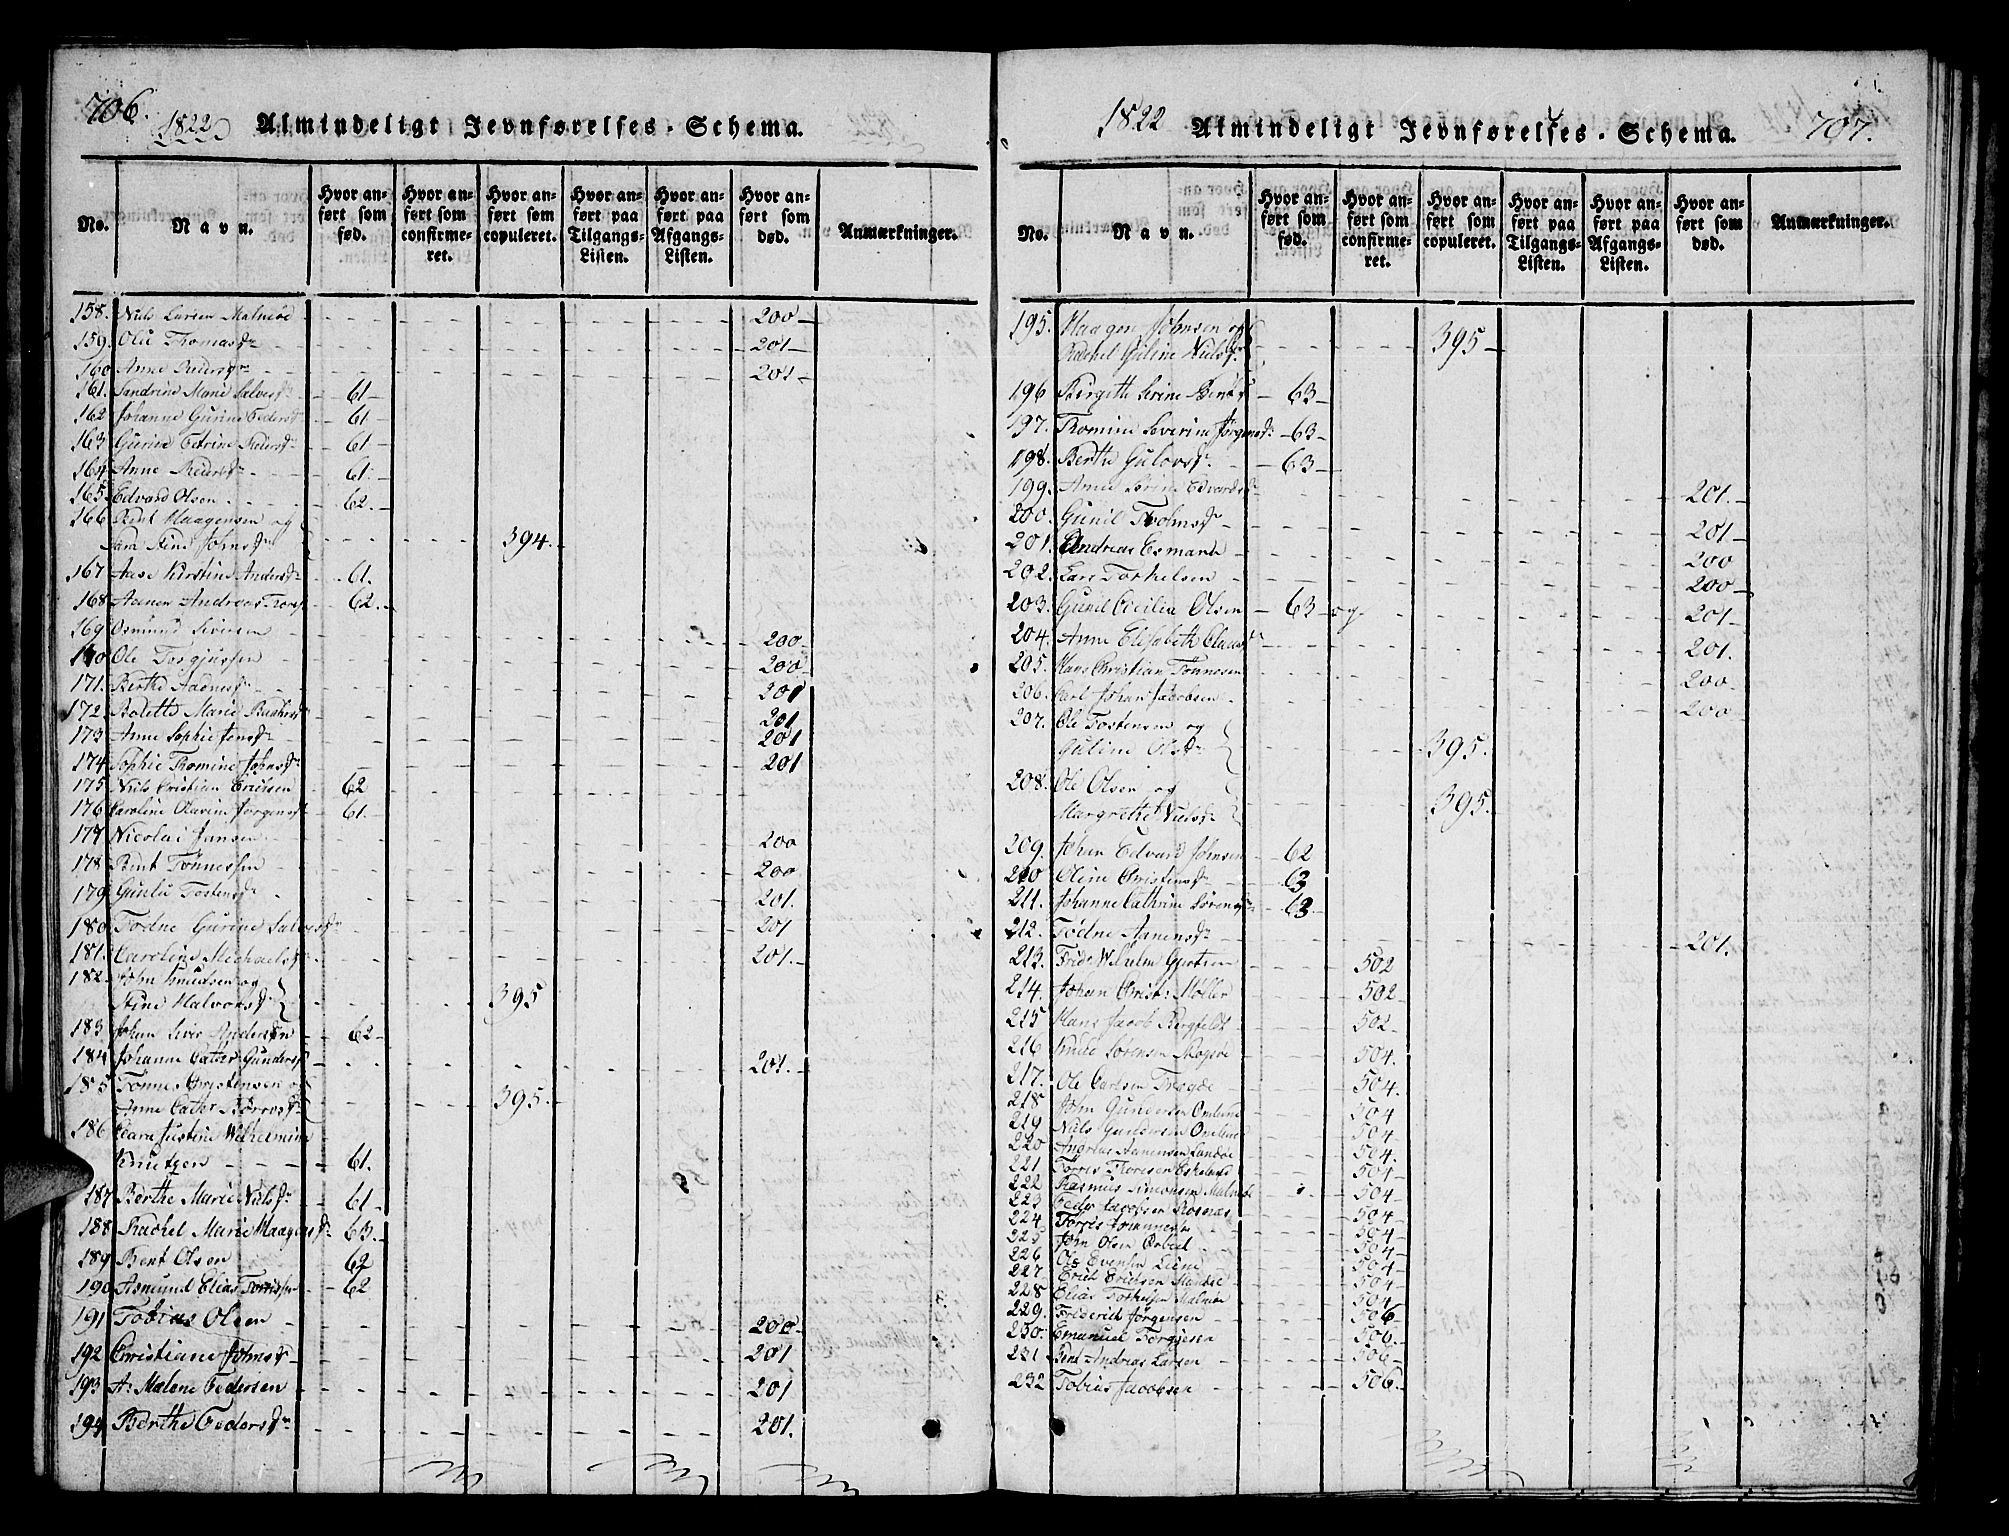 706.
1822 Almindeligt Jevnførelses-Schema.
No. Navn. Hvor anført som fød. Hvor anført som confirmeret. Hvor anført som copuleret. Hvor anført paa Tilgangs-Listen. Hvor anført paa Afgangs-Listen. Hvor anført som død. Anmærkninger.
158. Niels Larsen Malmöe 200
159. Olii Thomasdr 201
160 Anne Pedersdr 201
161. Sandrine Marie Salvesdr 61
162 Johanne Gurine Pedersdr 61
163 Gurine Petrine Pedersdr 61
164 Anne Pedersdr 61.
165. Edvard Olsen 62.
166 Bent Haagensen og
Sara Stine Johnsdr 394.
167 Aase Kirstine Andersdr 61.
168 Aanen Andreas 62.
169 Osmund Siversen 200
170 Ole Torgjussen 200
171. Berthe Aadnesdr 201
172. Bolette Marie 201
173 Anne Sophie Jensdr 201
174 Sophie Thomine Johnsdr 201
175 Niels Cristian Erichsen 62
176 Caroline Olavine Jørgensdr 61.
177 Nicolai Jansen 200
178 Bent Tönnessen 200
179 Gunlu Tostensdr 201.
180 Todne Gurine Salvesdr 201
181. Caroline Michaelsdr 201.
182. John Knudsen og
Stine Halvorsdr 395
183 Johan Siver Andersen 62
184 Johanne Cathr Gundersdr 201.
185 Tönnes Christensen og
Anne Cathr 395.
186 Clara Justine Wilhelmine
Knutzen 61.
187 Berthe Marie Nielsdr 61
188 Rachel Marie Haagensdr 63.
189 Bent Olsen 62
190 Asmund Elias Torrissen 62
191 Tobias Olsen 200
192 Christiane Johnsdr 201
193 A: Malene Pedersen 201
194 Berthe Pedersdr 201.
1822 Almindeligt Jevnførelses-Schema. 707.
No. Navn. Hvor anført som fød. Hvor anført som confirmeret. Hvor anført som copuleret. Hvor anført paa Tilgangs-Listen. Hvor anført paa Afgangs-Listen. Hvor anført som død. Anmærkninger.
195. Haagen Johnsen og
Rachel Guline Nielsdr 395
196 Birgitte Serine 63
197. Thomine Severine Jørgensdr 63
198. Berthe Gulovsdr 63
199. Anne Serine Edvardsdr 201.
200. Gunil Tholmsdr 201
201. Andreas Esmark 200
202. Lars Torkelsen 200
203. Gunil Cecilia Olsen 63 og 201
204. Anne Elisabeth 201.
205. Hans Christian Tönnesen 200
206. Carl Johan Jacobsen 200
207. Ole Tostensen og
Guline Olsdr 395.
208. Ole Olsen og
Margrethe Nielsdr 395.
209. Johan Edvard Johnsen 62
210 Oline Christensdr 63
211. Johanne Cathrine Sörensdr 63
212. Tödne Aanensdr 201.
213. Fridr Wilhelm Giertsen 502
214. Johan Christ: Möller 502
215 Hans Jacob Bergfeldt 502
216 Knud Sörensen Skogsöe 504.
217. Ole Carlsen Tregde 504.
218 John Gundersen Omland 504
219 Niels Gundersen Omland 504.
220 Andreas Aanensen Landöe 504.
221 Torris Thorisen Eskeland 504
222 Rasmus Simonsen Malmöe 504
223 Peder Jacobsen Rosnæs 504
224 Torris 504
225 John Olsen 504
226 Ole Evensen Liene 504
227 Erich Erichsen 504
228 Elias Torkelsen Malmöe 504
229. Frederich Jørgensen 506
230. Emanuel Torgjesen 506.
231 Bent Andreas Larsen 506
232 Tobias Jacobsen 506.